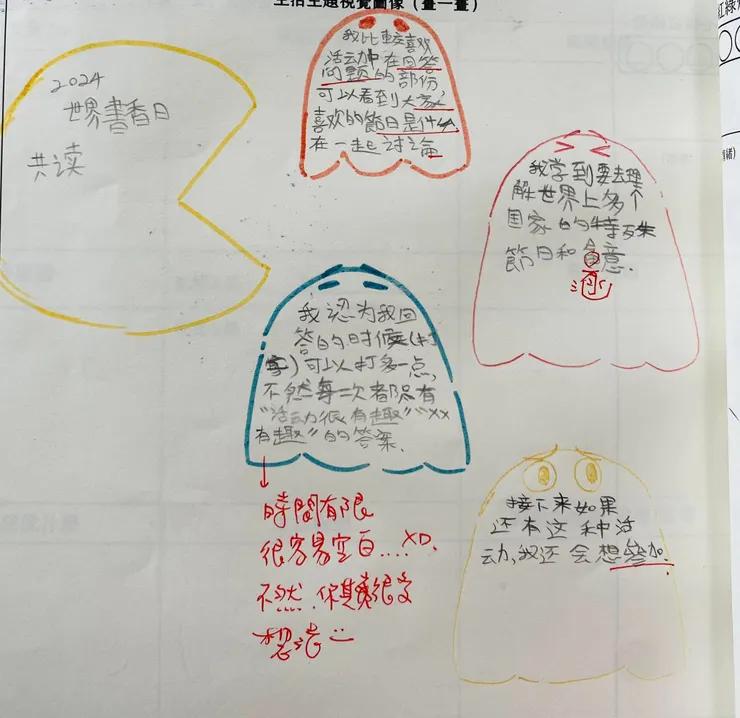 生活主題視覺圖像（畫一畫）
2024
世界書香日
共读
我比較喜欢
活动中在回答
问题的部份,
可以看到大家
喜欢的節日是什么
在一起讨论
我学到要去理
解世界上多个
国家的特殊
節日和意
我认为我回
答的时候(打
字)可以打多一点,
不然每一次都只有
"活动很有趣""xx
有趣"的答案.
時間有限
很容易空白....XD.
不然,你其實很多
想法
接下来如果
还有这种活
动,我还会想參加.